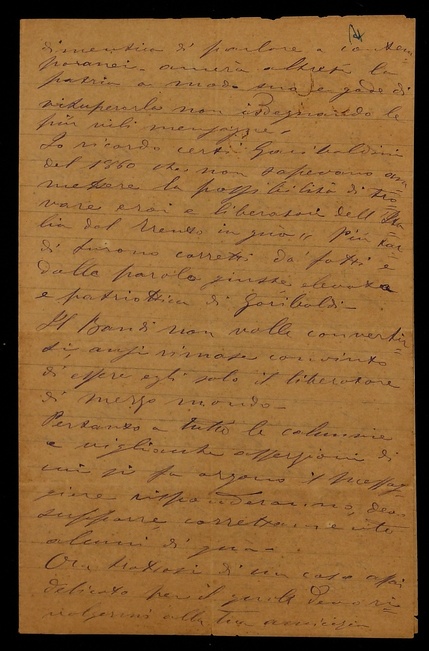 dimentica di parlare a contem=
poranei amerà altresì la
patria a modo suo e gode di
vituperarla non isdegnando le
più vili menzogne.
Io ricordo certi Garibaldini
del 1860 che non sapevano am=
mettere la possibilità di tro=
vare eroi e liberatori dell'Ita=
lia dal Tronto in giù. Più tar=
di furono corretti da' fatti e
dalla parola giusta elevata
e patriottica di Garibaldi.
Il Bandi non volle convertir=
si anzi rimase convinto
di essere egli solo il liberatore
di mezzo mondo.
Pertanto a tutte le calunnie
e asserzioni di
cui si fa organo il
risponderanno, deo
correttamente
alcuni di
Ora trattasi di un caso assai
delicato per il quale devo ri=
volgermi alla tua amicizia